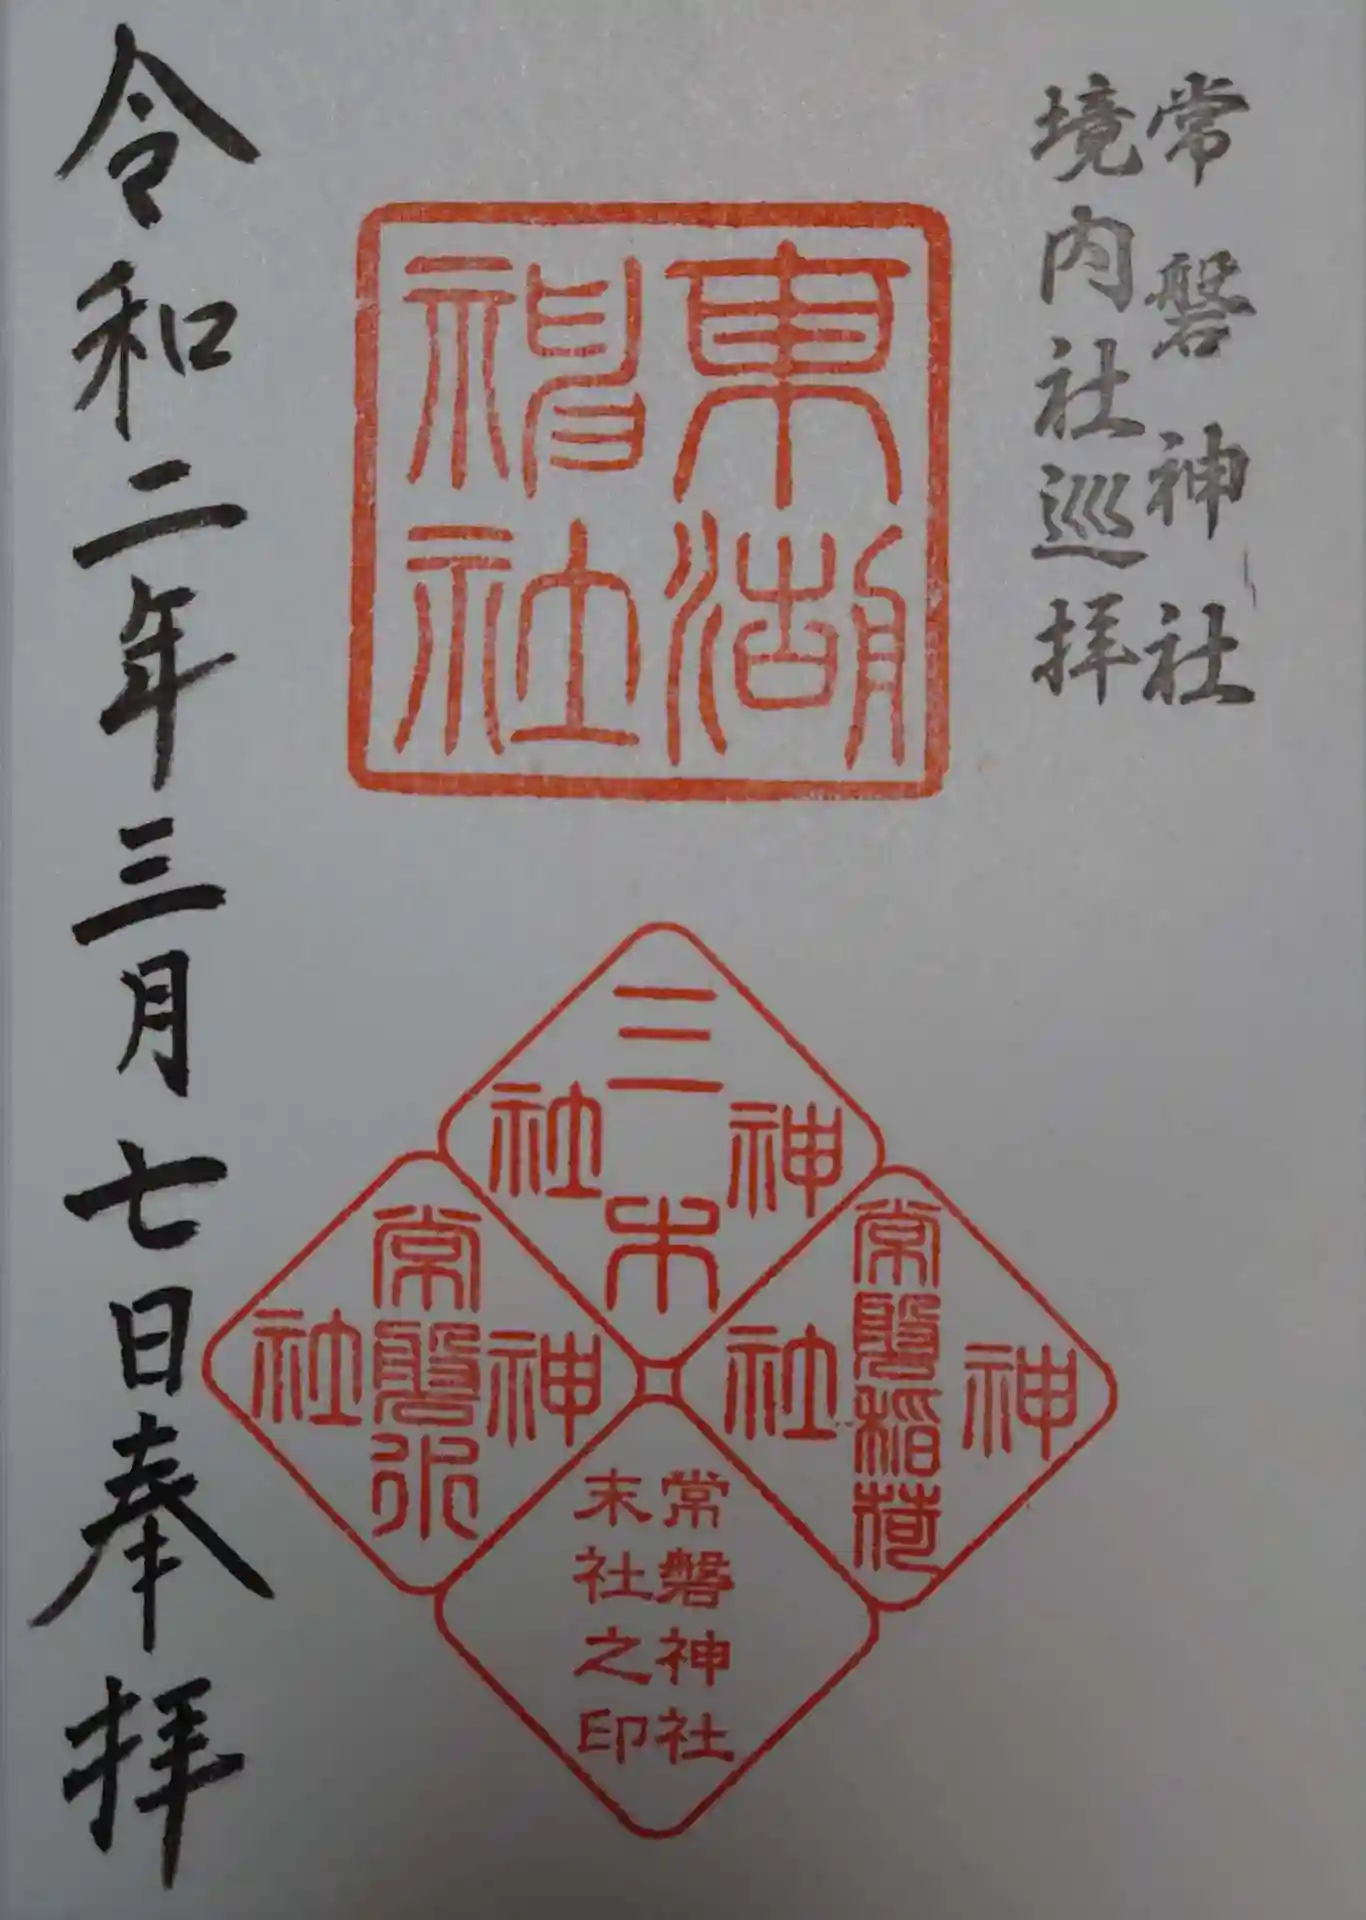 常磐神社
境内社巡拝
東湖
神社
三木
神社
常磐稲荷
神社
常磐
神社
常磐神社
末社之印
令和二年三月七日奉拝